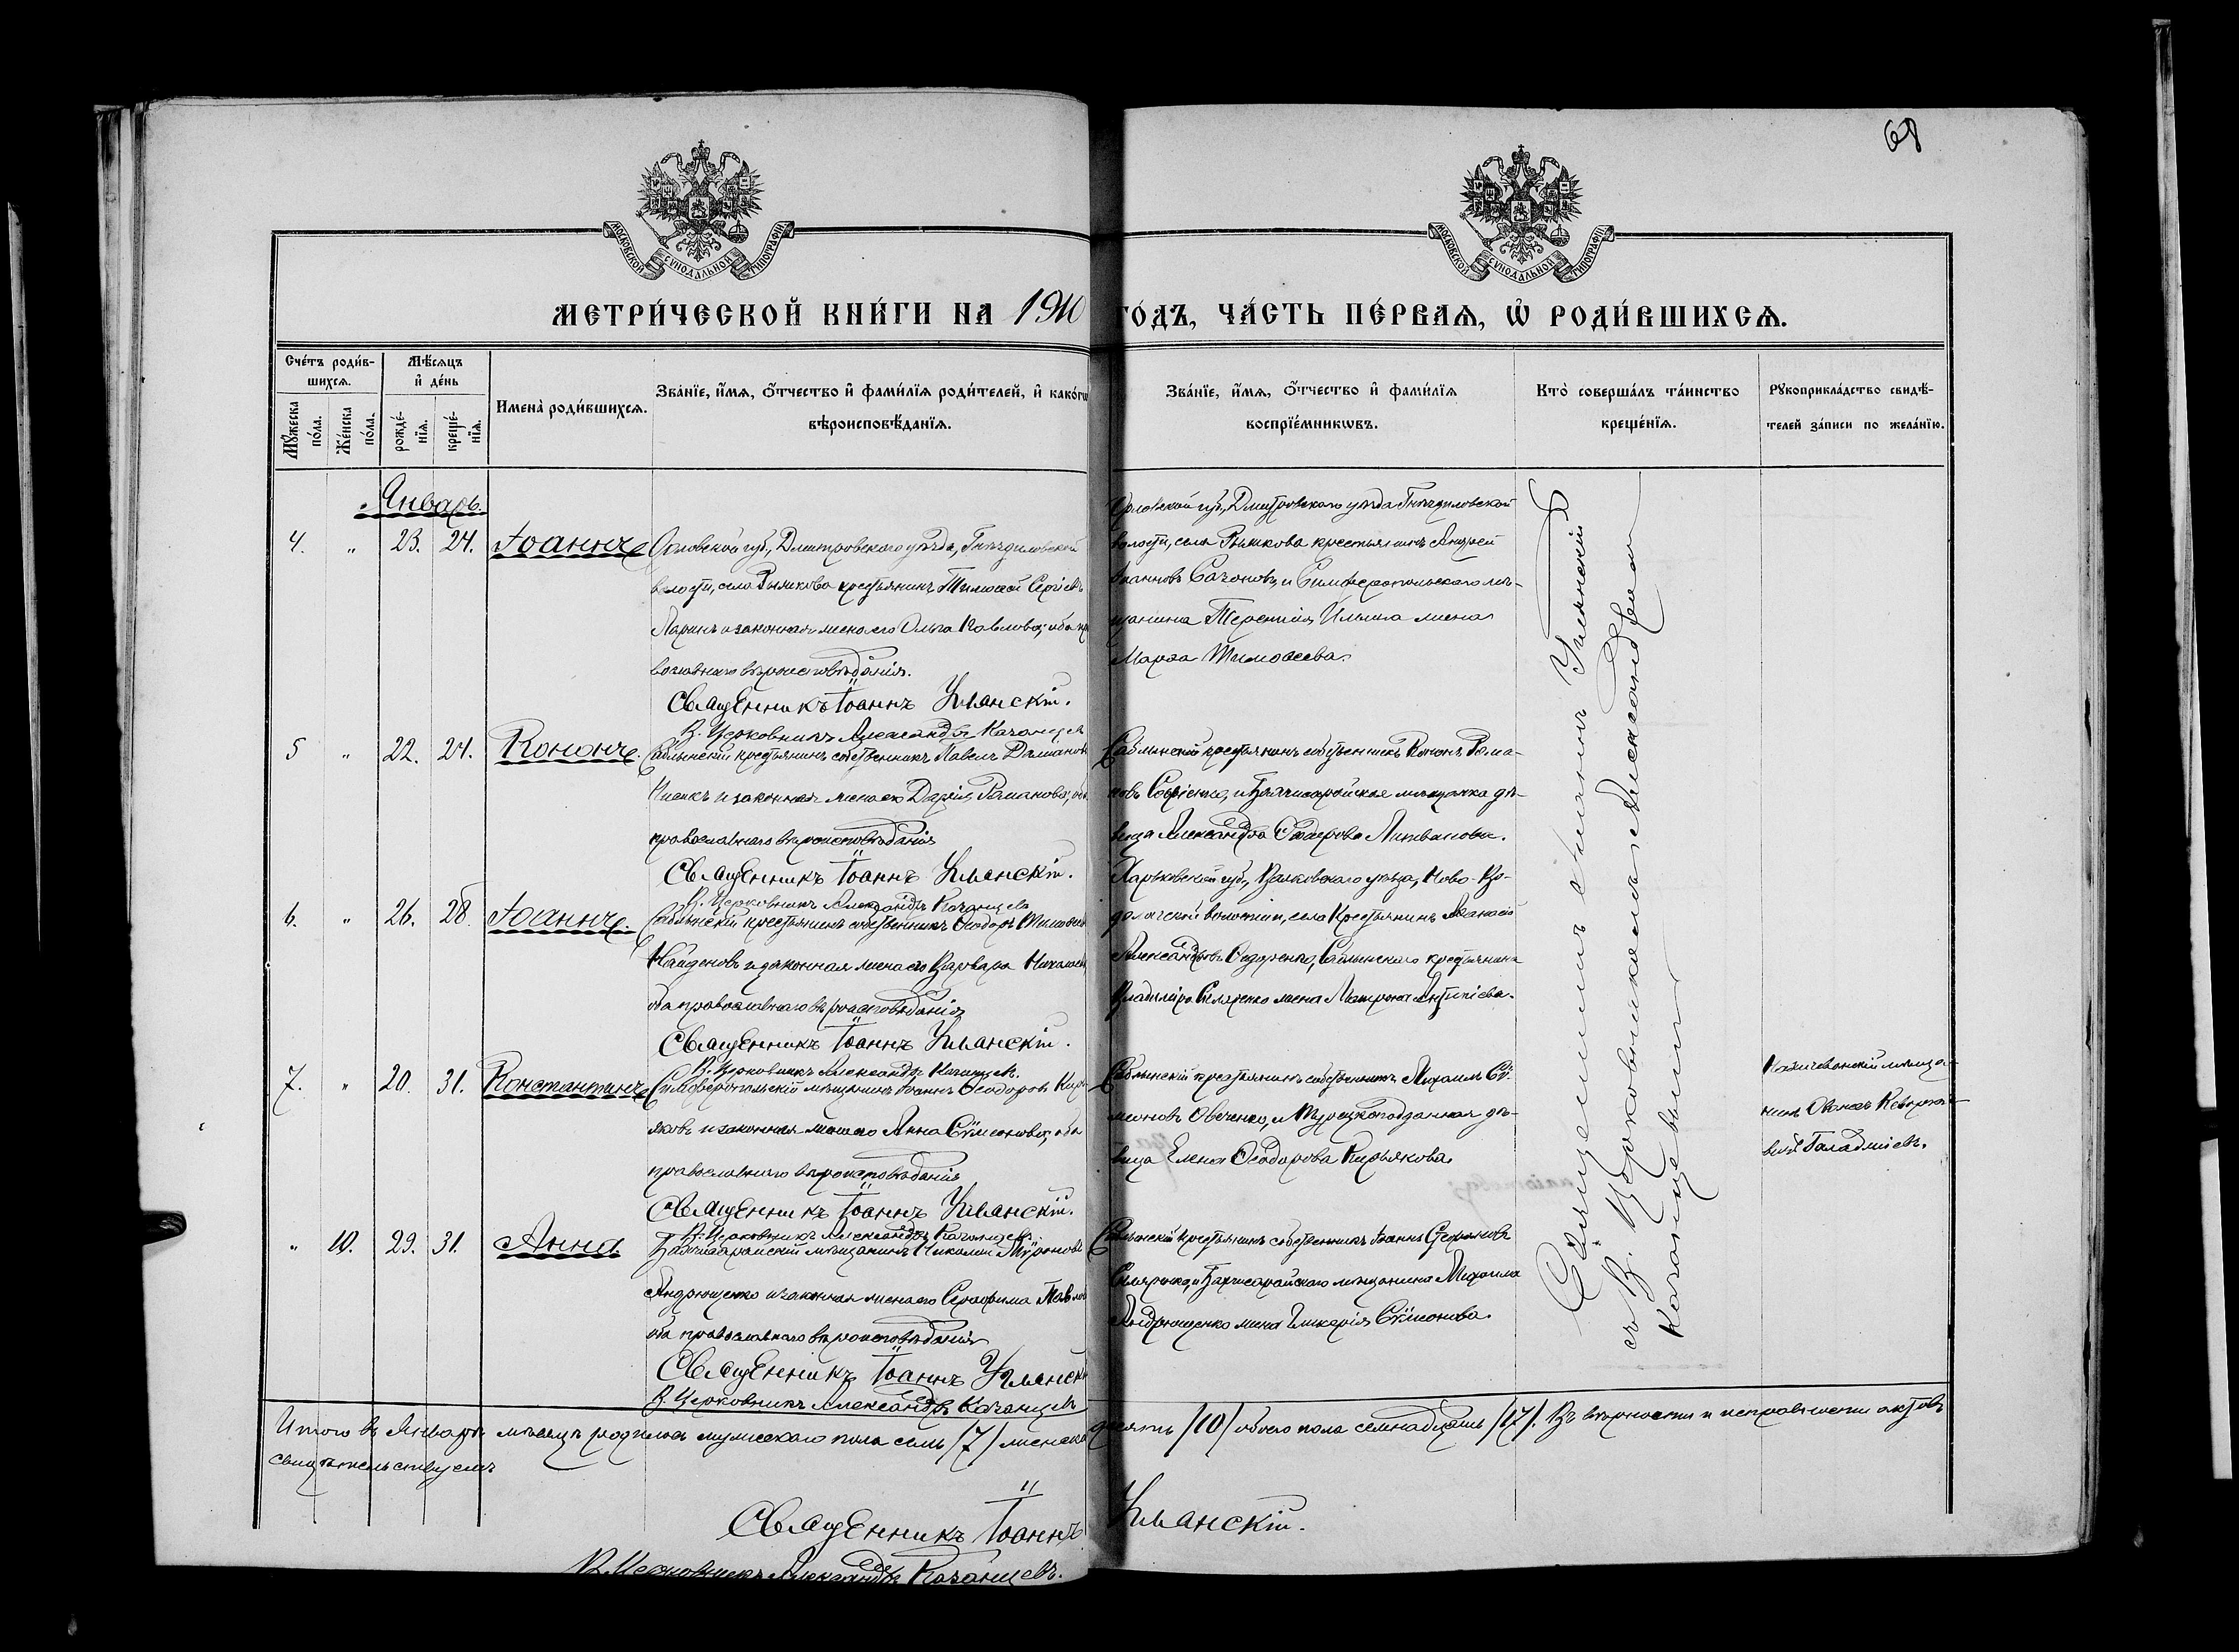 68
МОСКОВСКОЙ СѴНОДАЛЬНОЙ ТИПОГРАФІИ
МОСКОВСКОЙ СѴНОДАЛЬНОЙ ТИПОГРАФІИ
МЕТРИ́ЧЕСКОЙ КНИ́ГИ НА 1910 ГОДЪ, ЧА́СТЬ ПЕ́РВАѦ, Ѡ҆ РОДИ́ВШИХСѦ.
Сче́тъ роди́в-
шихсѧ.
Мѣ́сѧцъ
и҆ де́нь
Мꙋ́жеска
по́ла.
Же́нска
по́ла.
рожде́-
нїѧ.
креще́-
нїѧ.
Имена̀ роди́вшихсѧ.
Зва́нїе, и҆́мѧ, ѻ҆́тчество и҆ фами́лїѧ роди́телей, и҆ како́гѡ
вѣроисповѣ́данїѧ.
Зва́нїе, и҆́мѧ, ѻ҆́тчество и҆ фами́лїѧ
воспрїе́мникѡвъ.
Кто̀ соверша́лъ та́инство
креще́нїѧ.
Рꙋкоприкла́дство свидѣ́-
телей за́писи по жела́нїю.
Январь.
4. " 23. 24. Іоаннъ
Орловской губ., Дмитровскаго уѣзда, Гнѣздиловской
волости, села Рыжкова крестьянинъ Тимоѳей Сергіевъ
Ларинъ и законная жена его Ольга Павлова; оба пра
вославнаго вѣроисповѣданія.
Священникъ Іоаннъ Уманскій.
В. Церковникъ Александръ Качанцевъ
Орловской губ., Дмитровскаго уѣзда Гнѣздиловской
волости, села Рыжкова крестьянинъ Андрей
Іоанновъ Сачоновъ, и Симферопольскаго мѣ-
щанина Терентія Ильина жена
Марѳа Тимоѳеева.
5 " 22. 24. Кононъ.
Саблынскій крестьянинъ собственникъ Павелъ Дамiановъ
и законная жена его Дарія Романова; оба
православнаго вѣроисповѣданія
Священникъ Іоаннъ Уманскій.
В. Церковникъ Александръ Качанцевъ
Саблынскій крестьянинъ собственникъ Кононъ Рома-
новъ Сергіенко, и Бахчисарайская мѣщанка дѣ-
вица Александра Ѳеодорова Литвинова.
6. " 26. 28 Іоаннъ.
Саблынскій крестьянинъ собственникъ Ѳеодоръ Тимоѳеевъ
Найденовъ и законная жена его Варвара Николаева
оба православнаго вѣроисповѣданія
Священникъ Іоаннъ Уманскій.
В. Церковникъ Александръ Качанцевъ.
Харьковской губ., Валковскаго уѣзда, Ново-Во-
долажской волости, села крестьянинъ Аѳанасій
Александровъ Сидоренко, Саблынскаго крестьянина
Владиміра Скляренко жена Матрона Антипіева.
7. " 20. 31. Константинъ
Симферопольскій мѣщанинъ Іоаннъ Ѳеодоровъ Кирь-
яковъ и законная жена его Анна Сѵмеонова; оба
православнаго вѣроисповѣданія
Священникъ Іоаннъ Уманскій.
В. Церковникъ Александръ Качанцевъ.
Саблынскій крестьянинъ собственникъ Михаилъ Сѵ-
меоновъ Овченко, и Турецкоподданная дѣ-
вица Елена Ѳеодорова Кирьякова.
Нахичеванскій мѣща-
нинъ
" 10. 29. 31. Анна
Бахчисарайскій мѣщанинъ Николай Мѵроновъ
Андрющенко и законная жена его Серафима Павлова
оба православнаго вѣроисповѣданія
Священникъ Іоаннъ Уманскій
В. Церковникъ Александръ Качанцевъ
Саблынскій крестьянинъ собственникъ Іоаннъ Стефановъ
Скляренко, и Бахчисарайскаго мѣщанина Михаила
Андрющенко жена Гликерія Сѵмеонова.
Священникъ Іоаннъ Уманскій
съ В. Церковникомъ Александромъ
Качанцевымъ
Итого въ Январѣ мѣсяцѣ родилось мужескаго пола семь /7/ женска десять /10/ обоего пола семнадцать /17/. Въ вѣрности и исправности актовъ
свидѣтельствуемъ
Священникъ Іоаннъ Уманскій.
В. Церковникъ Александръ Качанцевъ.